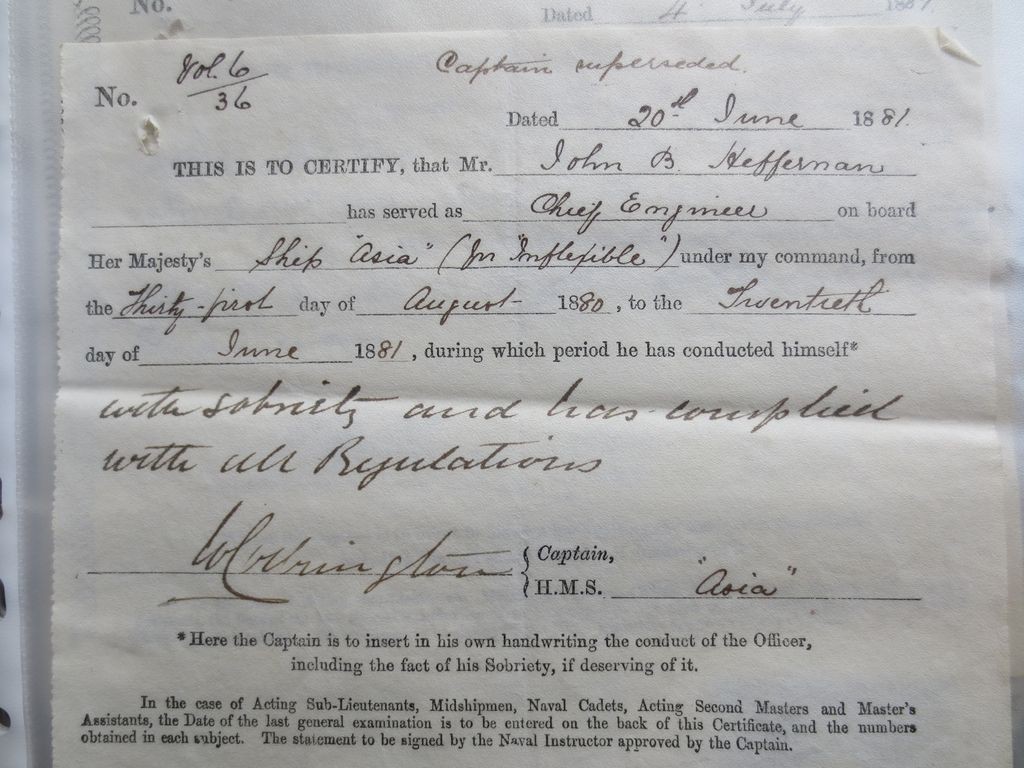 No.
Dated 4 July 1881
Vol. 6
No. 36
Captain superseded.
Dated 20th June 1881.
THIS IS TO CERTIFY, that Mr. John B. Heffernan
has served as Chief Engineer on board
Her Majesty's Ship "Asia" (for "Inflexible") under my command, from
the Thirty-first day of August 1880, to the Twentieth
day of June 1881, during which period he has conducted himself*
with sobriety and has complied
with all Regulations
WCodrington { Captain,
H.M.S. "Asia"
*Here the Captain is to insert in his own handwriting the conduct of the Officer,
including the fact of his Sobriety, if deserving of it.
In the case of Acting Sub-Lieutenants, Midshipmen, Naval Cadets, Acting Second Masters and Master's
Assistants, the Date of the last general examination is to be entered on the back of this Certificate, and the numbers
obtained in each subject. The statement to be signed by the Naval Instructor approved by the Captain.